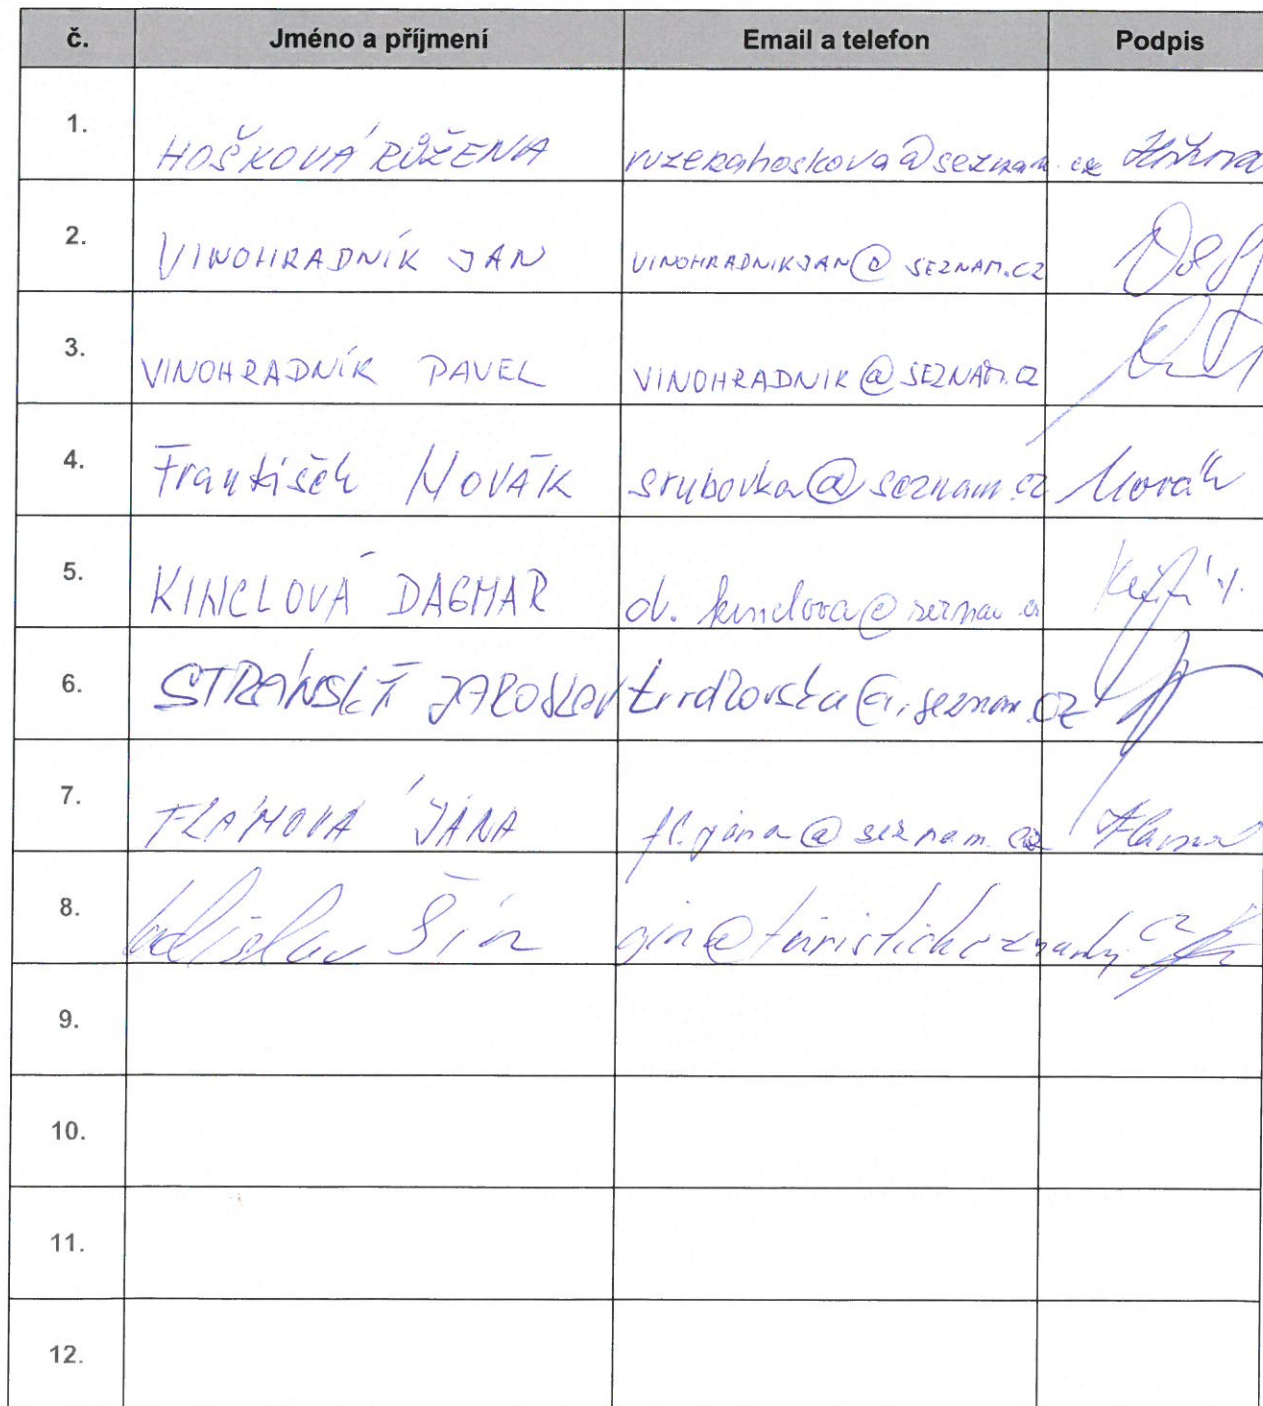 č. Jméno a příjmení Email a telefon Podpis
1. HOŠKOVÁ RŮŽENA ruzenahoskova@seznam.cz
2. VINOHRADNÍK JAN VINOHRADNIKJAN@SEZNAM.CZ
3. VINOHRADNÍK PAVEL VINOHRADNIK@SEZNAM.CZ
4. František NOVÁK srubovka@seznam.cz Novák
5. KINCLOVÁ DAGMAR d.kinclova@seznam.cz
6. STRÁNSKÝ JAROSLAV @seznam.cz
7. FLÁMOVÁ JANA fl.jana@seznam.cz
8. Ladislav Šín
9.
10.
11.
12.